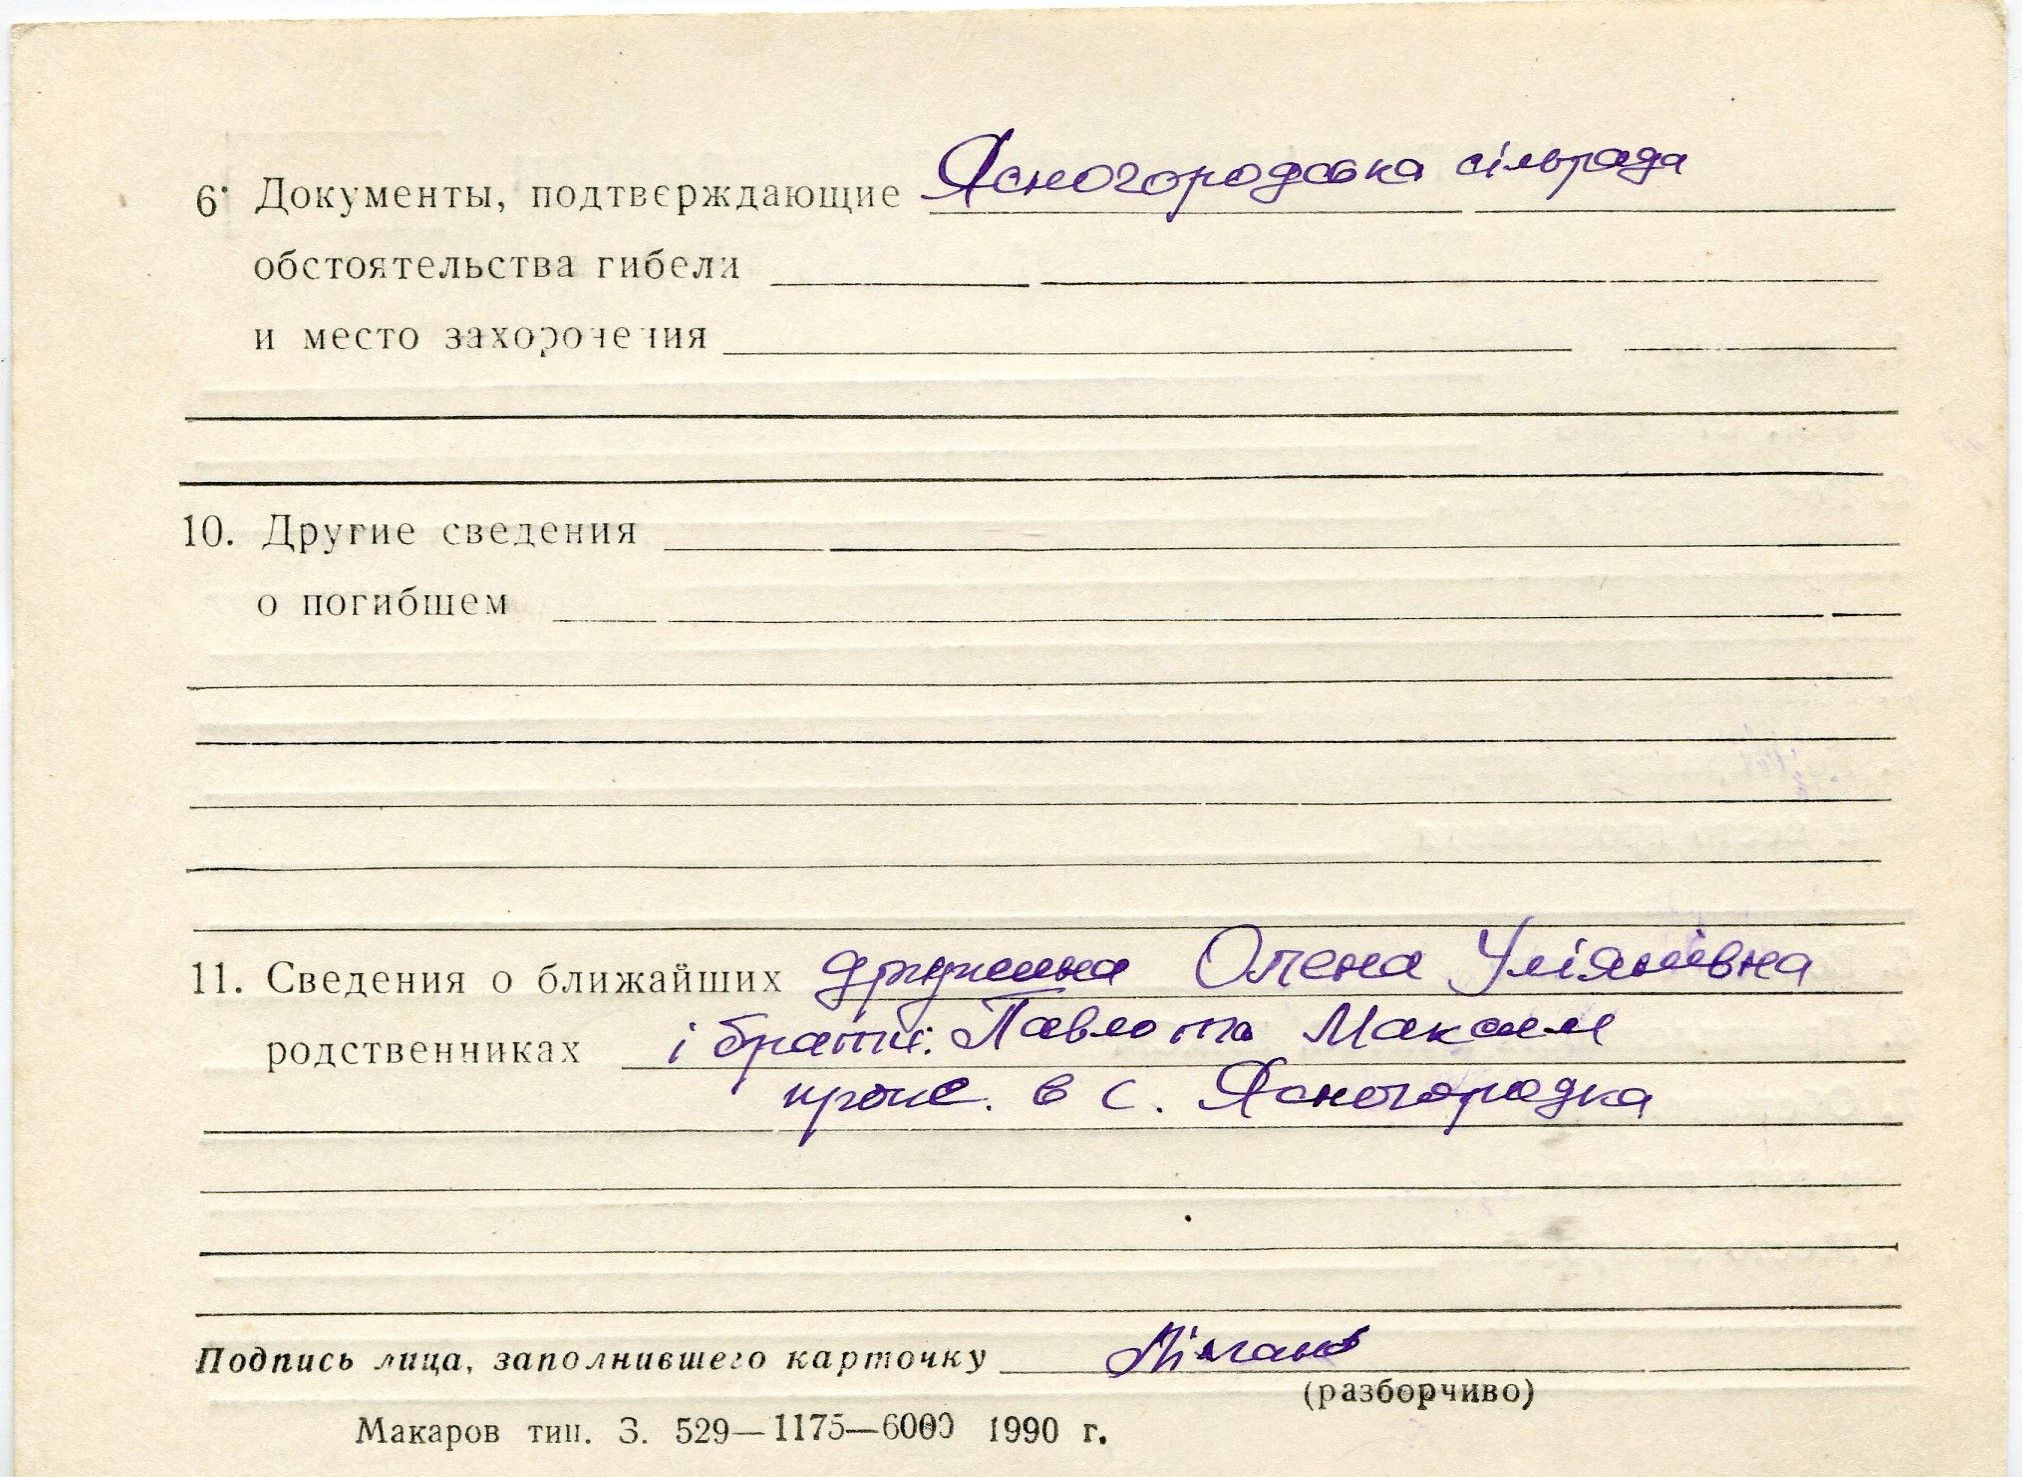 6. Документы, подтверждающие Ясногородська сільрада
обстоятельства гибели
и место захоронения
10. Другие сведения
о погибшем
11. Сведения о ближайших дружина Олена Уліянівна
родственниках і брати: Павло та Максим
прож. в с. Ясногородка
Подпись лица, заполнившего карточку
(разборчиво)
Макаров тип. З. 529—1175—6000 1990 г.